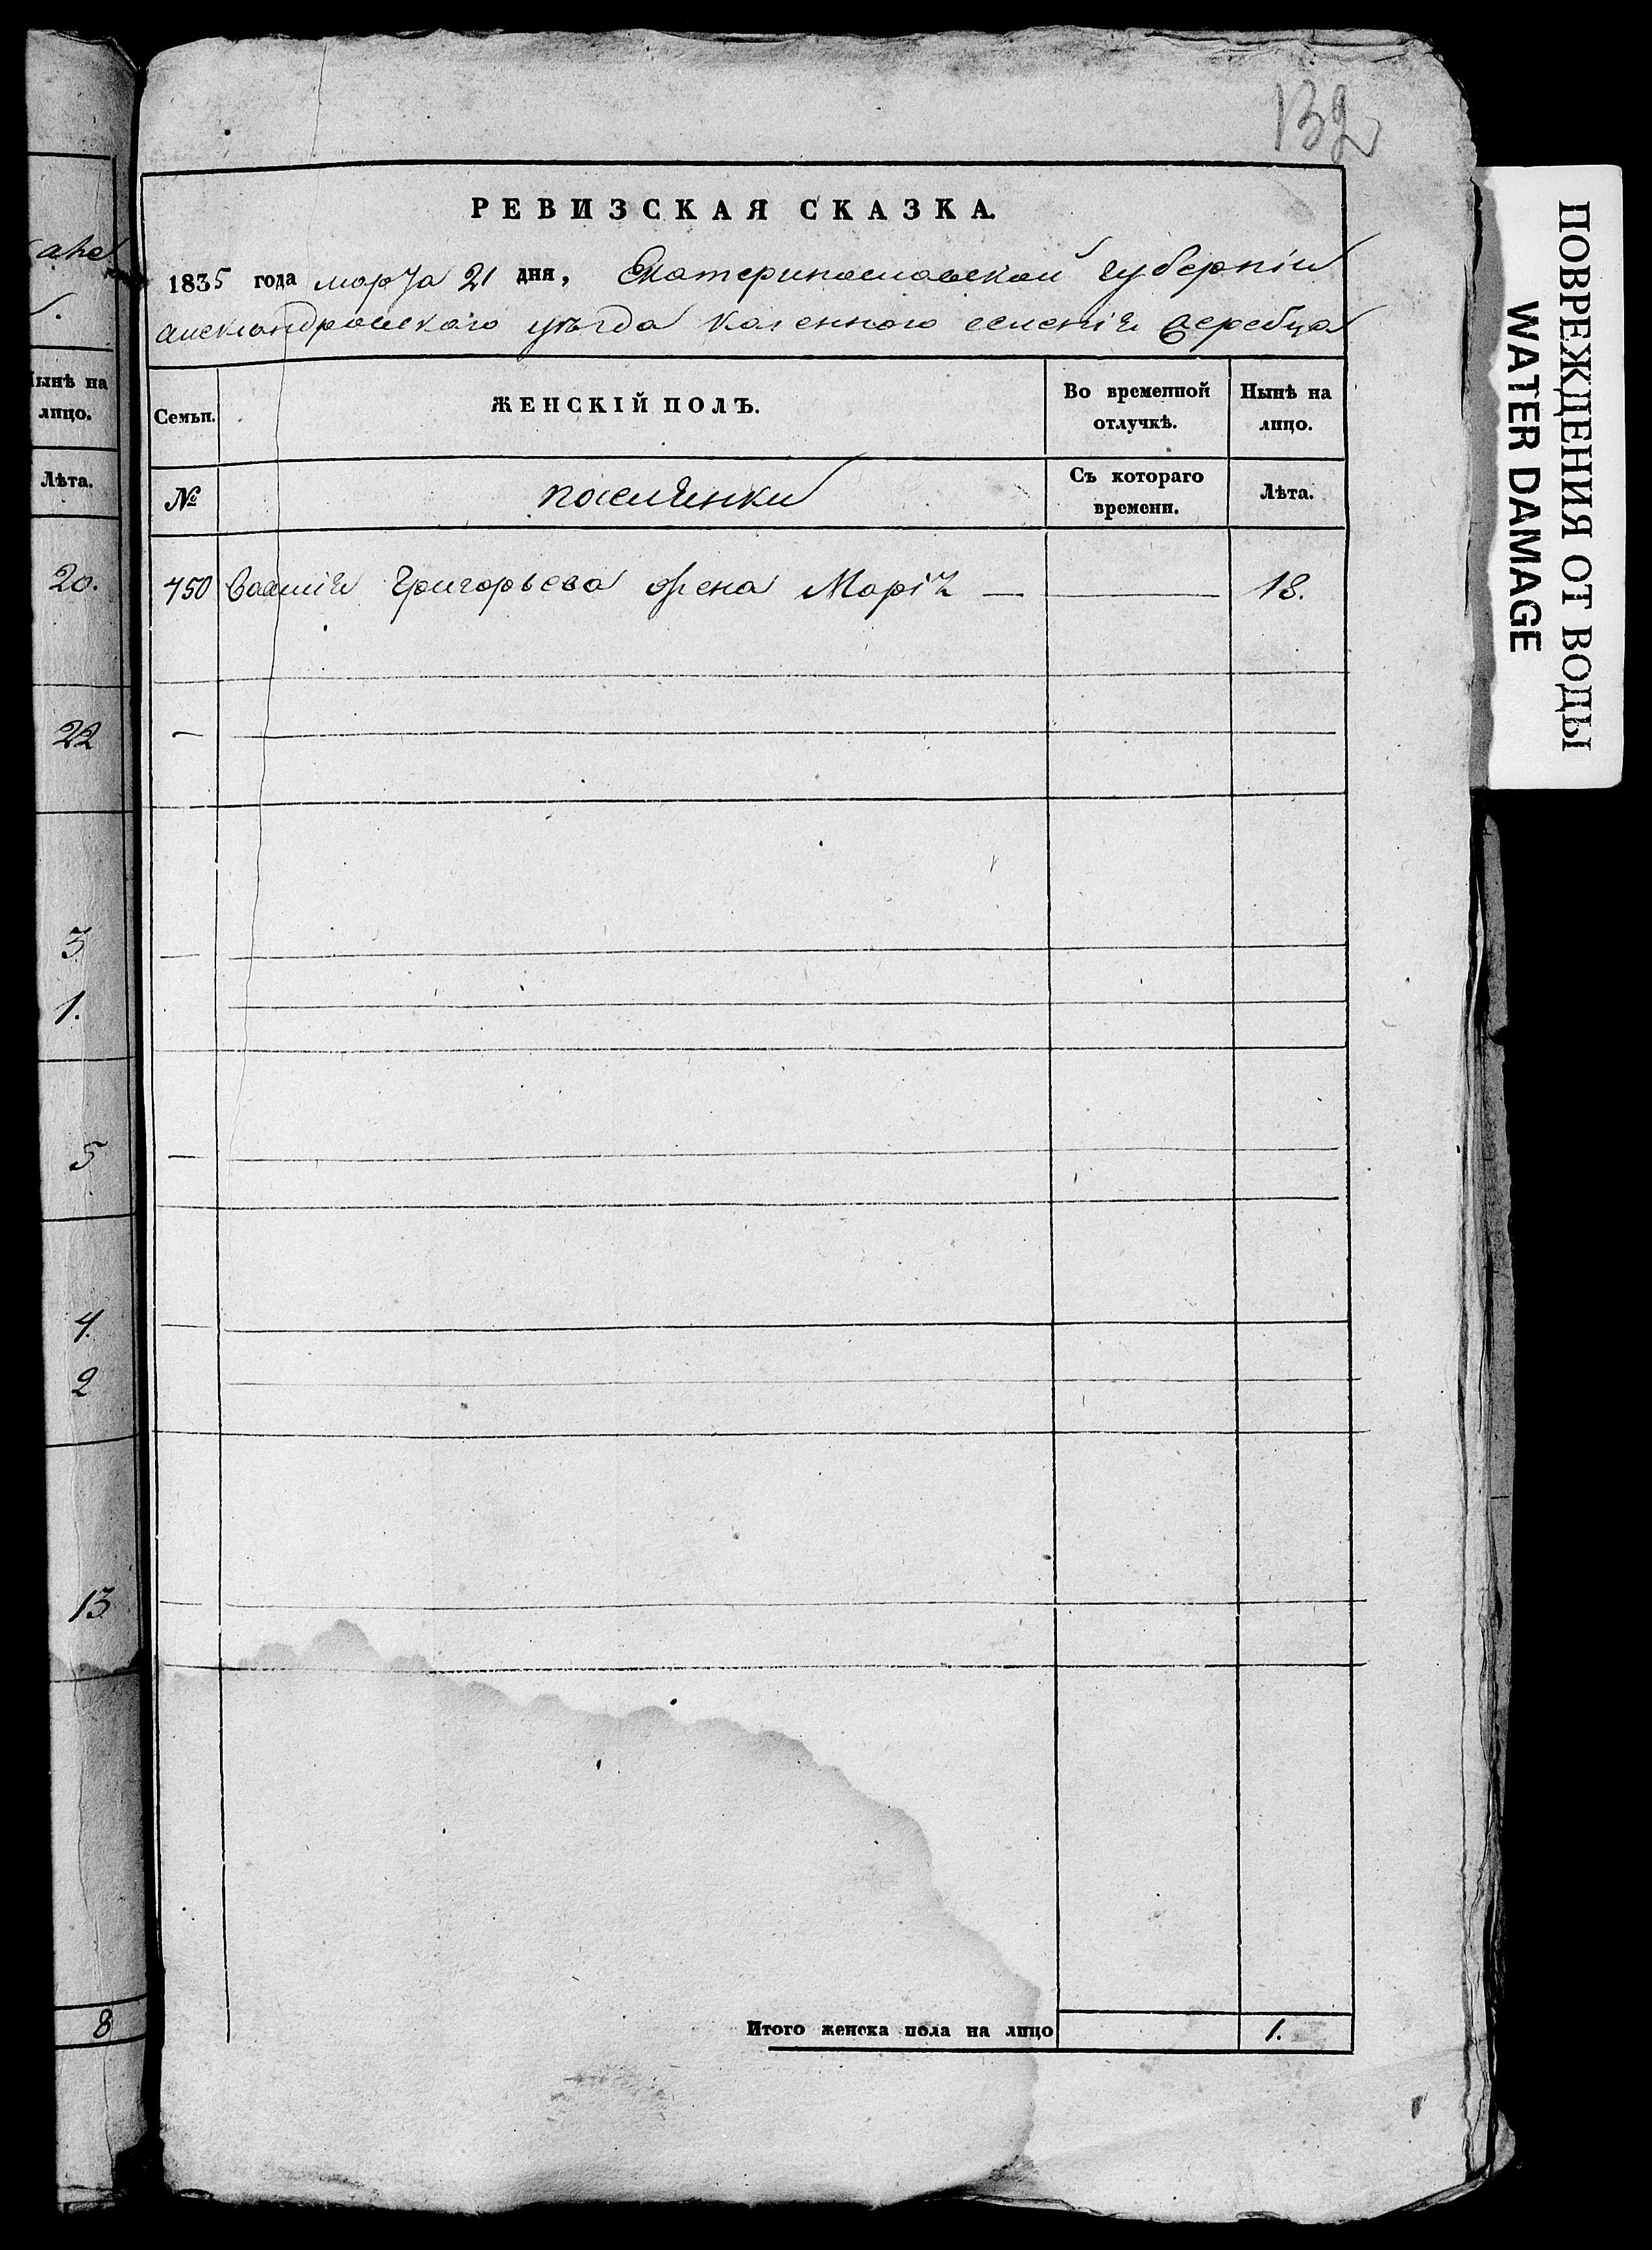 132
РЕВИЗСКАЯ СКАЗКА.
1835 года марта 21 дня, Екатеринославской губерніи
александровского уѣзда казенного селенія жеребца
Семьи.
ЖЕНСКІЙ ПОЛЪ.
Во временной отлучкѣ.
Нынѣ на лицо.
№
поселянки
Съ котораго времени.
Лѣта.
450
Григорьева жена Марія
18.
Итого женска пола на лицо
1.
Нынѣ на
лицо.
Лѣта.
20.
22
3
1.
5
4.
2
13
8
ПОВРЕЖДЕНИЯ ОТ ВОДЫ
WATER DAMAGE